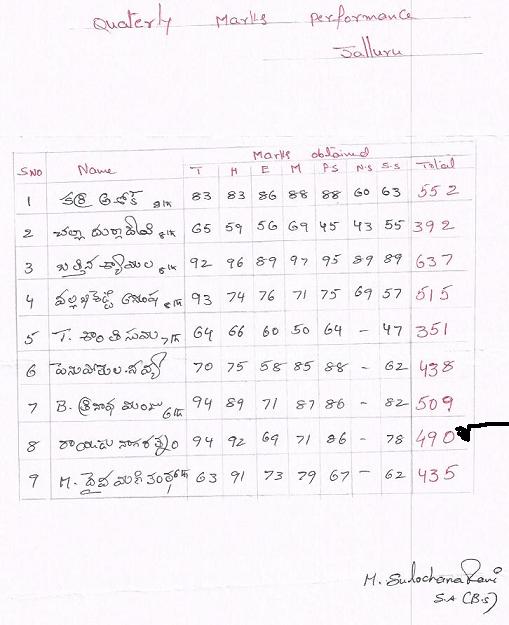 Quaterly Marks performance
Jalluru
Marks obtained
SNO Name T H E M P.S N.S S.S Total
1 83 83 86 88 88 60 63 552
2 చల్లా దుర్గాదేవి 8th 65 59 56 69 45 43 55 392
3 బత్తిన శ్యామల 8th 92 96 89 97 95 89 89 637
4 93 74 76 71 75 69 57 515
5 T. శాంతి సుమ 7th 64 66 60 50 64 - 47 351
6 70 75 58 85 88 - 62 438
7 B. 6th 94 89 71 87 86 - 82 509
8 రాయుడు నాగరత్నం 94 92 69 71 86 - 78 490
9 M. 63 91 73 79 67 - 62 435
M. Sulochana Rani
S.A (B.S)